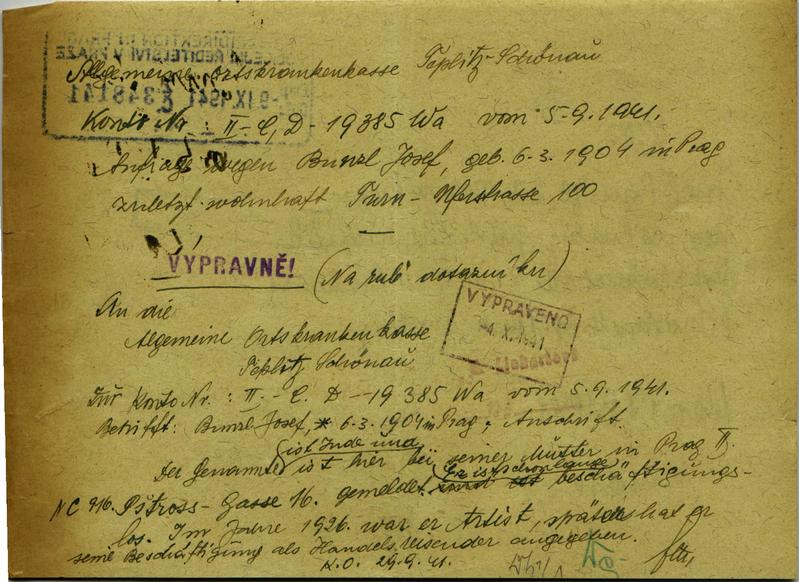 Allgemeine Ortskrankenkasse Teplitz-Schönau
9.IX.1941 2348141
Konto Nr : II-C, D - 19385 Wa vom 5-9.1941.
Anfrage wegen Bunzl Josef, geb. 6-3. 1904 in Prag
zuletzt wohnhaft Turn - Uferstrasse 100
VÝPRAVNĚ!
(Na rub dotazníku)
An die
Algemeine Ortskrankenkasse
Teplitz Schönau
VYPRAVENO
-4.X.1941
Für Konto Nr. : II. - C. D - 19 385 Wa vom 5.9.1941.
Betrifft: Bunzl Josef, * 6-3.1904 in Prag, Anschrift.
ist Jude und
Der Genannte ist hier bei seiner Mutter in Prag II.
Er ist schon lange
NC 916. Pštross-Gasse 16. gemeldet beschäftigungs-
los. Im Jahre 1926. war er Artist, später hat er
seine Beschäftigung als Handelsreisender angegeben.
K.O. 29.9.41.